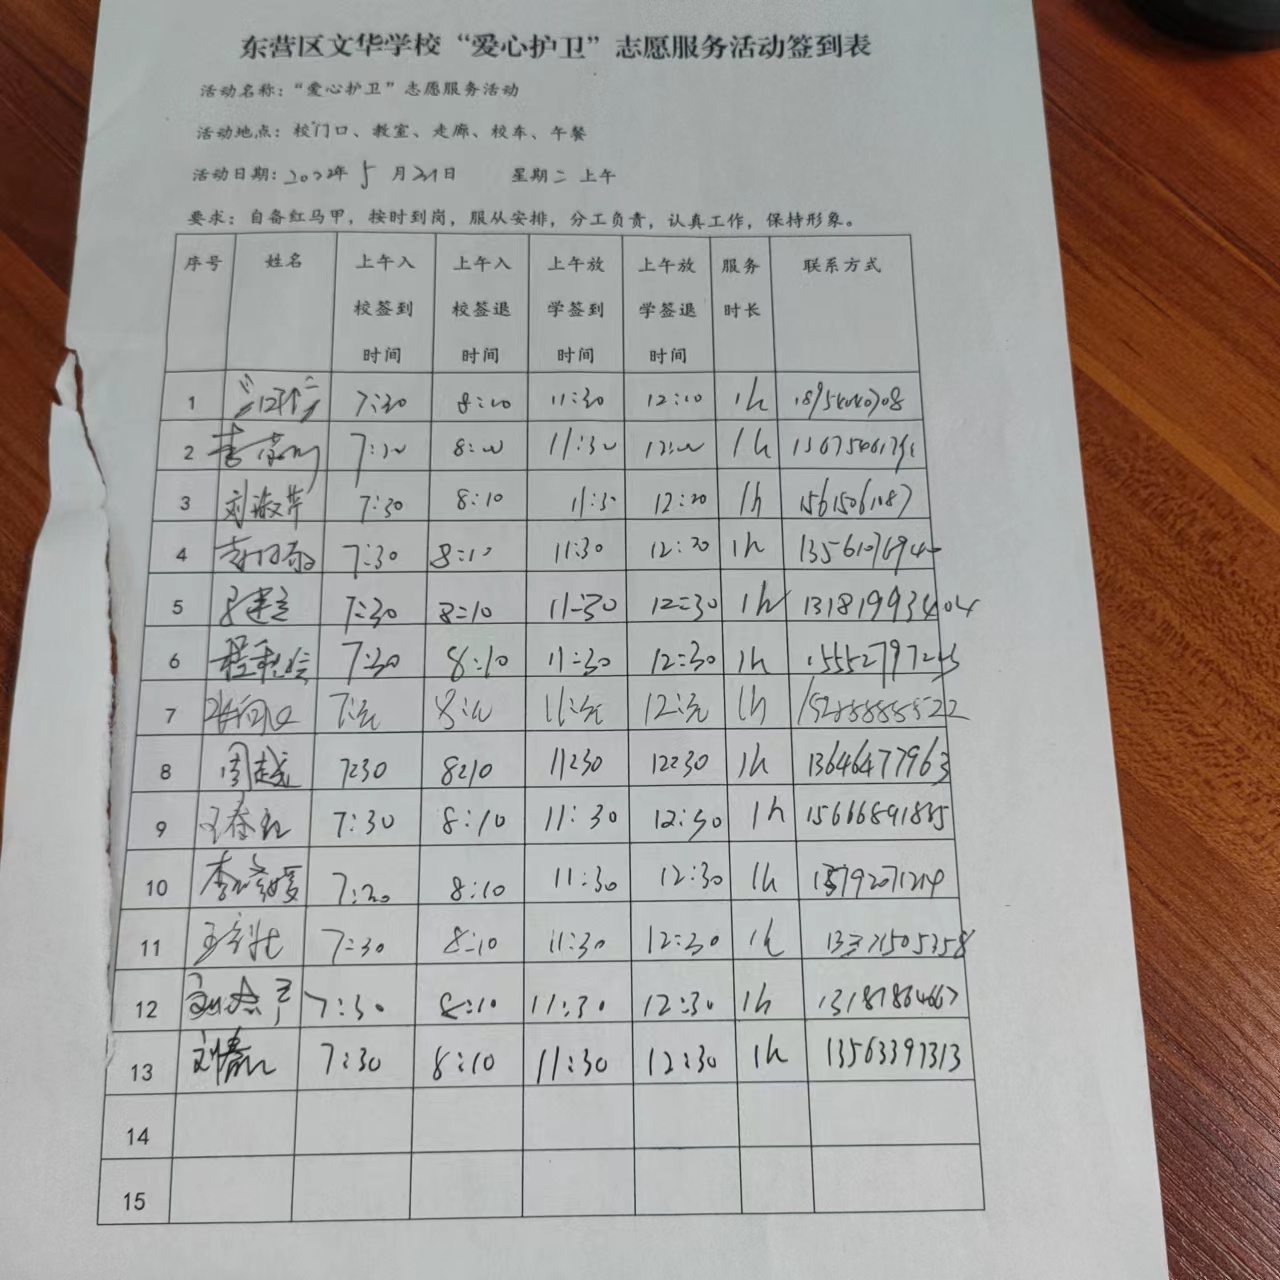 东营区文华学校“爱心护卫”志愿服务活动签到表
活动名称：“爱心护卫”志愿服务活动
活动地点：校门口、教室、走廊、校车、午餐
活动日期：2022年 5 月31日 星期二 上午
要求：自备红马甲，按时到岗，服从安排，分工负责，认真工作，保持形象。
序号 姓名 上午入校签到时间 上午入校签退时间 上午放学签到时间 上午放学签退时间 服务时长 联系方式
1 7:30 8:00 11:30 12:10 1h
2 8:00 11:30 12:00 1h
3 刘淑萍 7:30 8:10 11:30 12:20 1h
4 7:30 8:10 11:30 12:20 1h
5 7:30 8:10 11:30 12:30 1h 13181993404
6 7:30 8:10 11:30 12:30 1h
7 7:30 8:10 11:30 12:30 1h
8 周越 7:30 8:10 11:30 12:30 1h 13646477963
9 王春红 7:30 8:10 11:30 12:30 1h
10 7:30 8:10 11:30 12:30 1h
11 7:30 8:10 11:30 12:30 1h
12 7:30 8:10 11:30 12:30 1h 13187864667
13 7:30 8:10 11:30 12:30 1h 13563397313
14
15